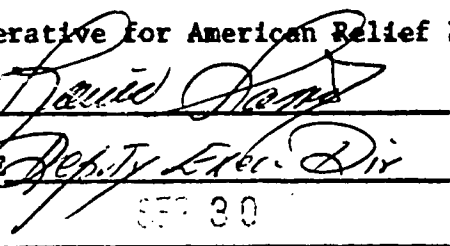 erative for American Relief
Deputy Exec. Dir
SEP 30